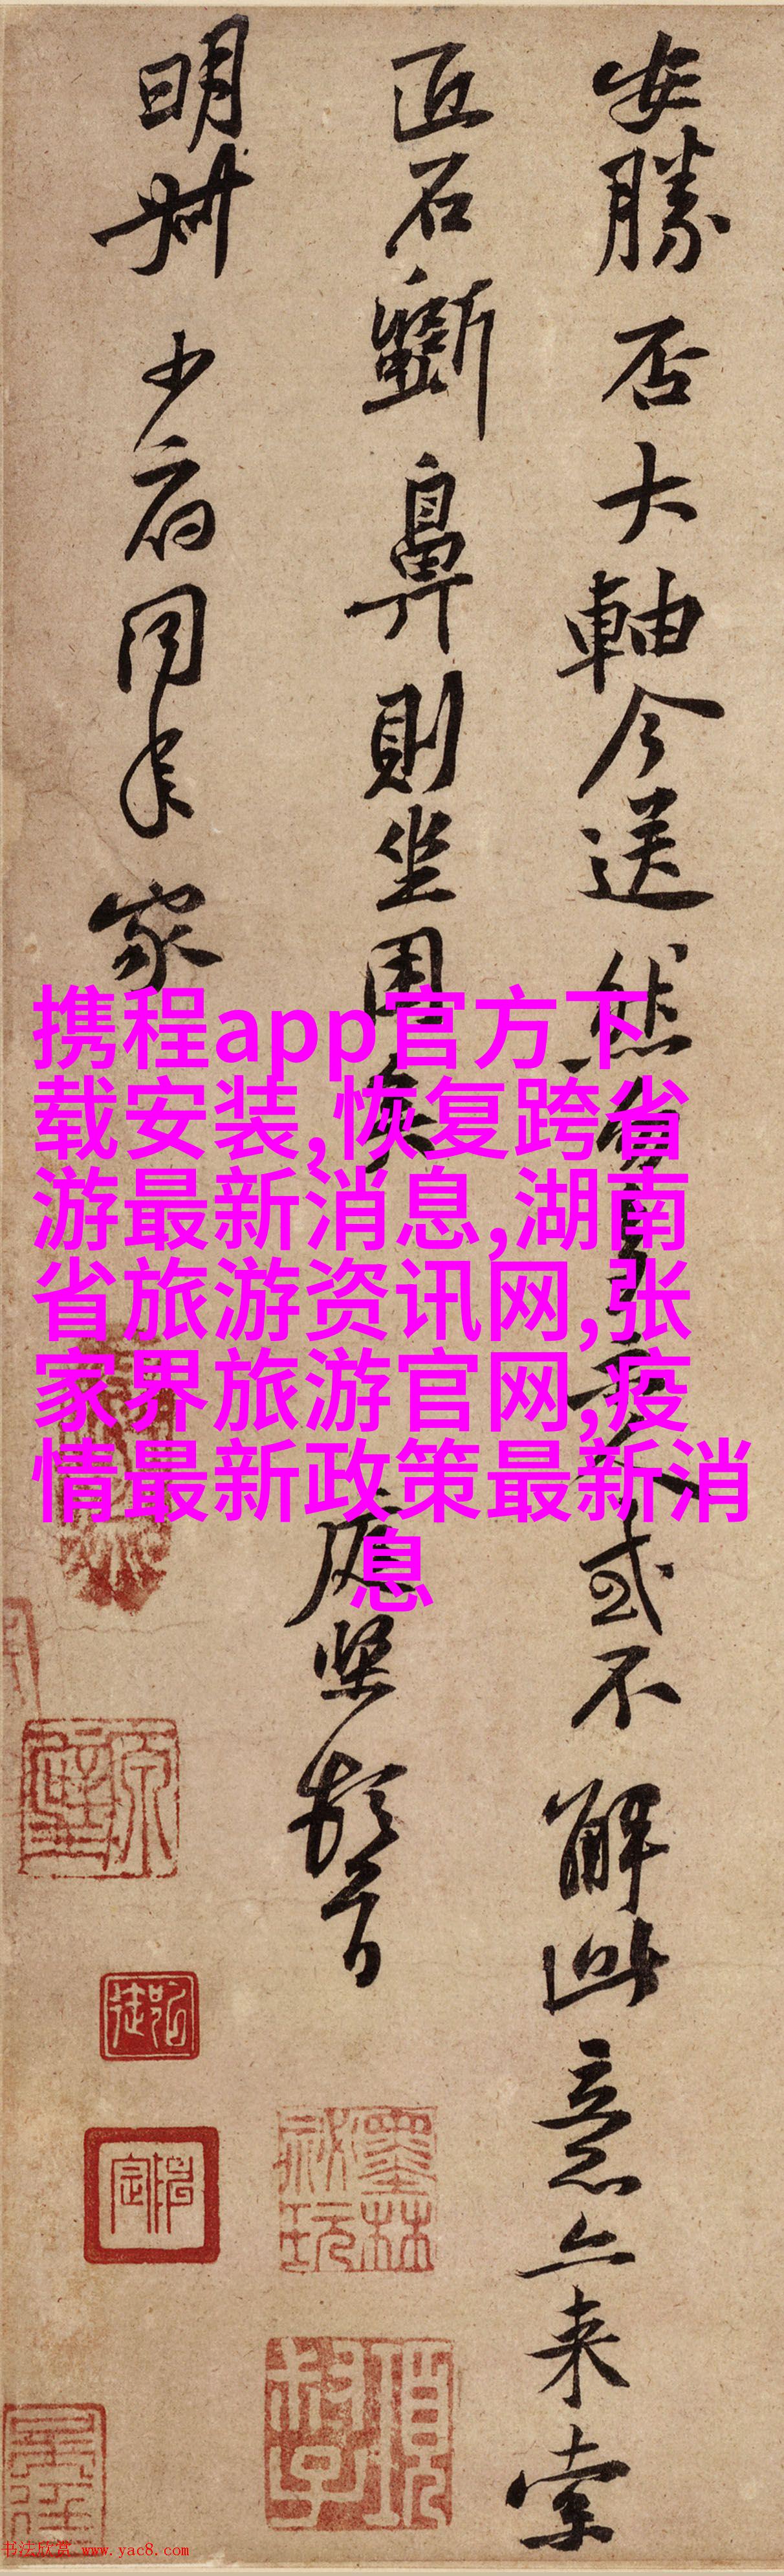 安勝否大軸今送然勿人或不解此意亦来索
匠石斲鼻則坐困矣
庭堅頓首
明叔少府同年家
携程app官方下
载安装,恢复跨省
游最新消息,湖南
省旅游资讯网,张
家界旅游官网,疫
情最新政策最新消
息
墨林秘玩
书法欣赏 www.yac8.com